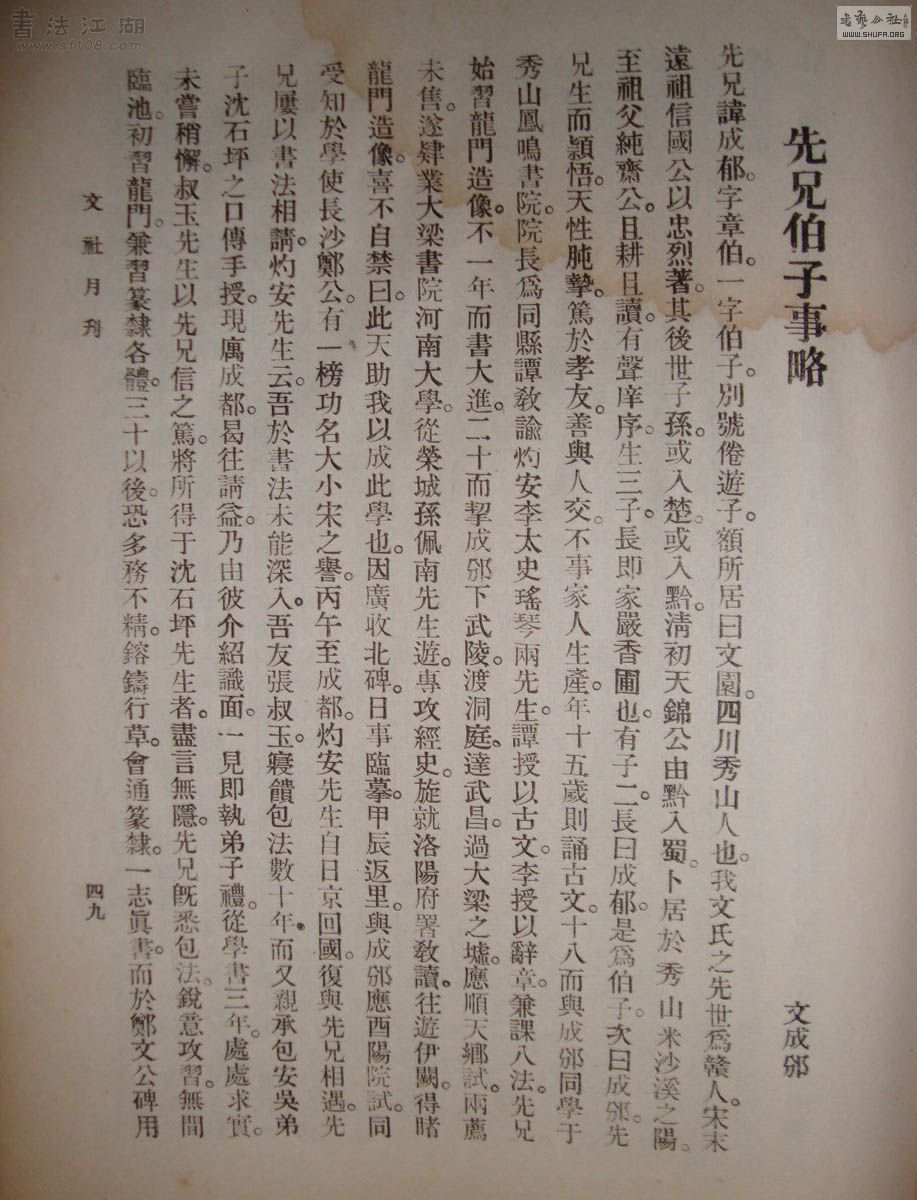 書法江湖
www.sf108.com
WWW.SHUFA.ORG
先兄伯子事略
文成邠
先兄諱成郁。字章伯。一字伯子。別號倦遊子。額所居曰文園。四川秀山人也。我文氏之先世爲贛人。宋末
遠祖信國公以忠烈著。其後世子孫。或入楚。或入黔。淸初天錦公由黔入蜀。卜居於秀山米沙溪之陽。
至祖父純齋公。且耕且讀。有聲庠序。生三子。長即家嚴香圃也。有子二。長曰成郁。是爲伯子。次曰成邠。先
兄生而頴悟。天性肫摯。篤於孝友。善與人交。不事家人生產。年十五歲則誦古文。十八而與成邠同學于
秀山鳳鳴書院。院長爲同縣譚敎諭灼安李太史瑤琴兩先生。譚授以古文。李授以辭章。兼課八法。先兄
始習龍門造像。不一年而書大進。二十而挈成邠下武陵。渡洞庭、達武昌。過大梁之墟。應順天鄕試。兩薦
未售。遂肄業大梁書院河南大學。從榮城孫佩南先生遊。專攻經史。旋就洛陽府署敎讀。往遊伊闕。得睹
龍門造像。喜不自禁。曰。此天助我以成此學也。因廣收北碑。日事臨摹。甲辰返里。與成邠應酉陽院試。同
受知於學使長沙鄭公。有一榜功名大小宋之譽。丙午至成都。灼安先生自日京回國。復與先兄相遇。先
兄屢以書法相請。灼安先生云。吾於書法未能深入。吾友張叔玉。寢饋包法數十年。而又親承包安吳弟
子沈石坪之口傳手授。現寓成都。曷往請益。乃由彼介紹識面。一見即執弟子禮。從學書三年。處處求實。
未嘗稍懈。叔玉先生以先兄信之篤。將所得于沈石坪先生者。盡言無隱。先兄旣悉包法。銳意攻習。無間
臨池。初習龍門。兼習篆隸各體。三十以後。恐多務不精。鎔鑄行草。會通篆隸。一志眞書。而於鄭文公碑用
文社月刊
四九